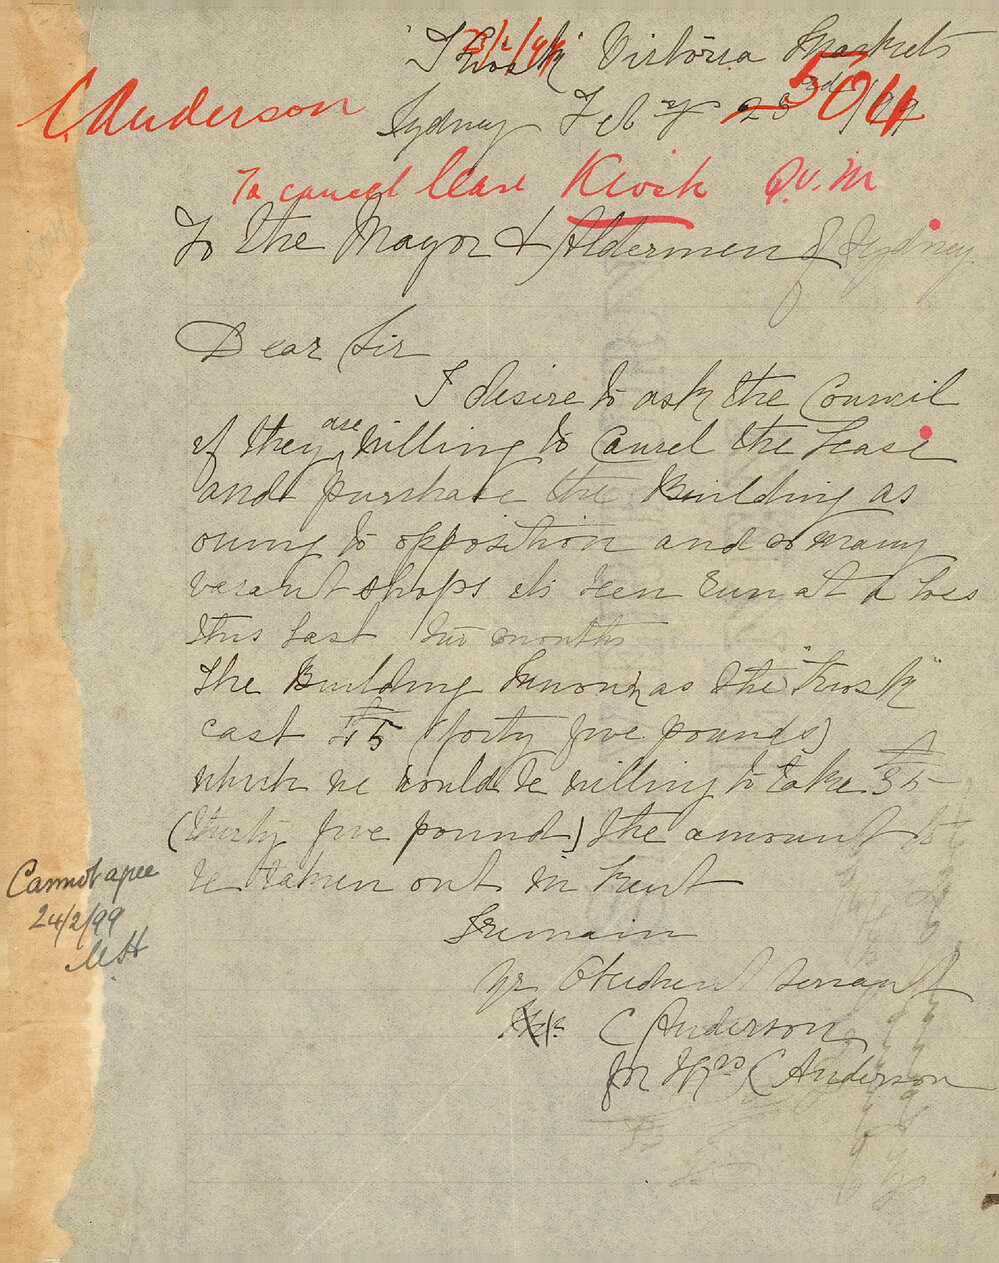 "Kiosk" Victoria Markets
23/2/99
504
C Anderson
Sydney Feby 23rd /99
To cancel lease Kiosk Q.V.M
To the Mayor & Aldermen of Sydney
Dear Sir
I desire to ask the Council
if they are willing to Cancel the Lease
and purchase the Building as
owing to opposition and so many
vacant shops its been run at a loss
this last two months
The Building known as the "Kiosk"
cost £45 (forty five pounds)
which we would be willing to take £35
(thirty five pound) the amount to
be taken out in Rent
Cannot agree
24/2/99
I remain
yr Obedient Servant
C Anderson
for Mrs C Anderson